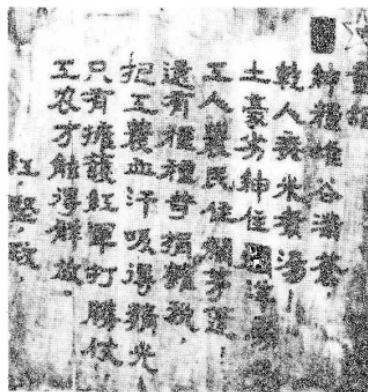 紳糧堆谷滿蒼
乾人米煮湯
土豪劣紳住洋房
工人農民住茅蓬
還有種種苛捐雜税
把工農血汗吸得精光
只有擁護紅軍打勝仗
工农才能得解放
紅 堅 政